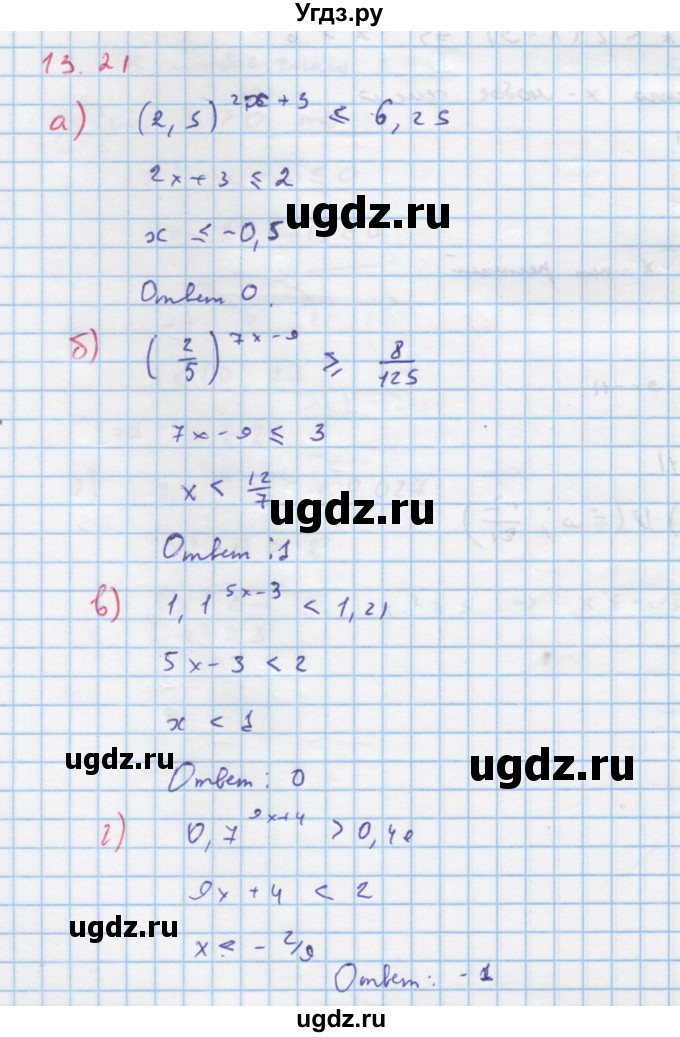 Угдз.ру
13.21
а) (2,5)^(2x+3) ≤ 6,25
2x+3 ≤ 2
ugdz.ru
x ≤ -0,5
Ответ 0.
б) (2/5)^(7x-9) ≥ 8/125
7x-9 ≤ 3
x < 12/7
ugdz.ru
Ответ: 1
в) 1,1^(5x-3) < 1,21
5x-3 < 2
x < 1
ugdz.ru ugdz.ru
Ответ: 0
г) 0,7^(9x+4) > 0,49
9x+4 < 2
ugdz.ru
x < -2/9
Ответ: -1
ugdz.ru